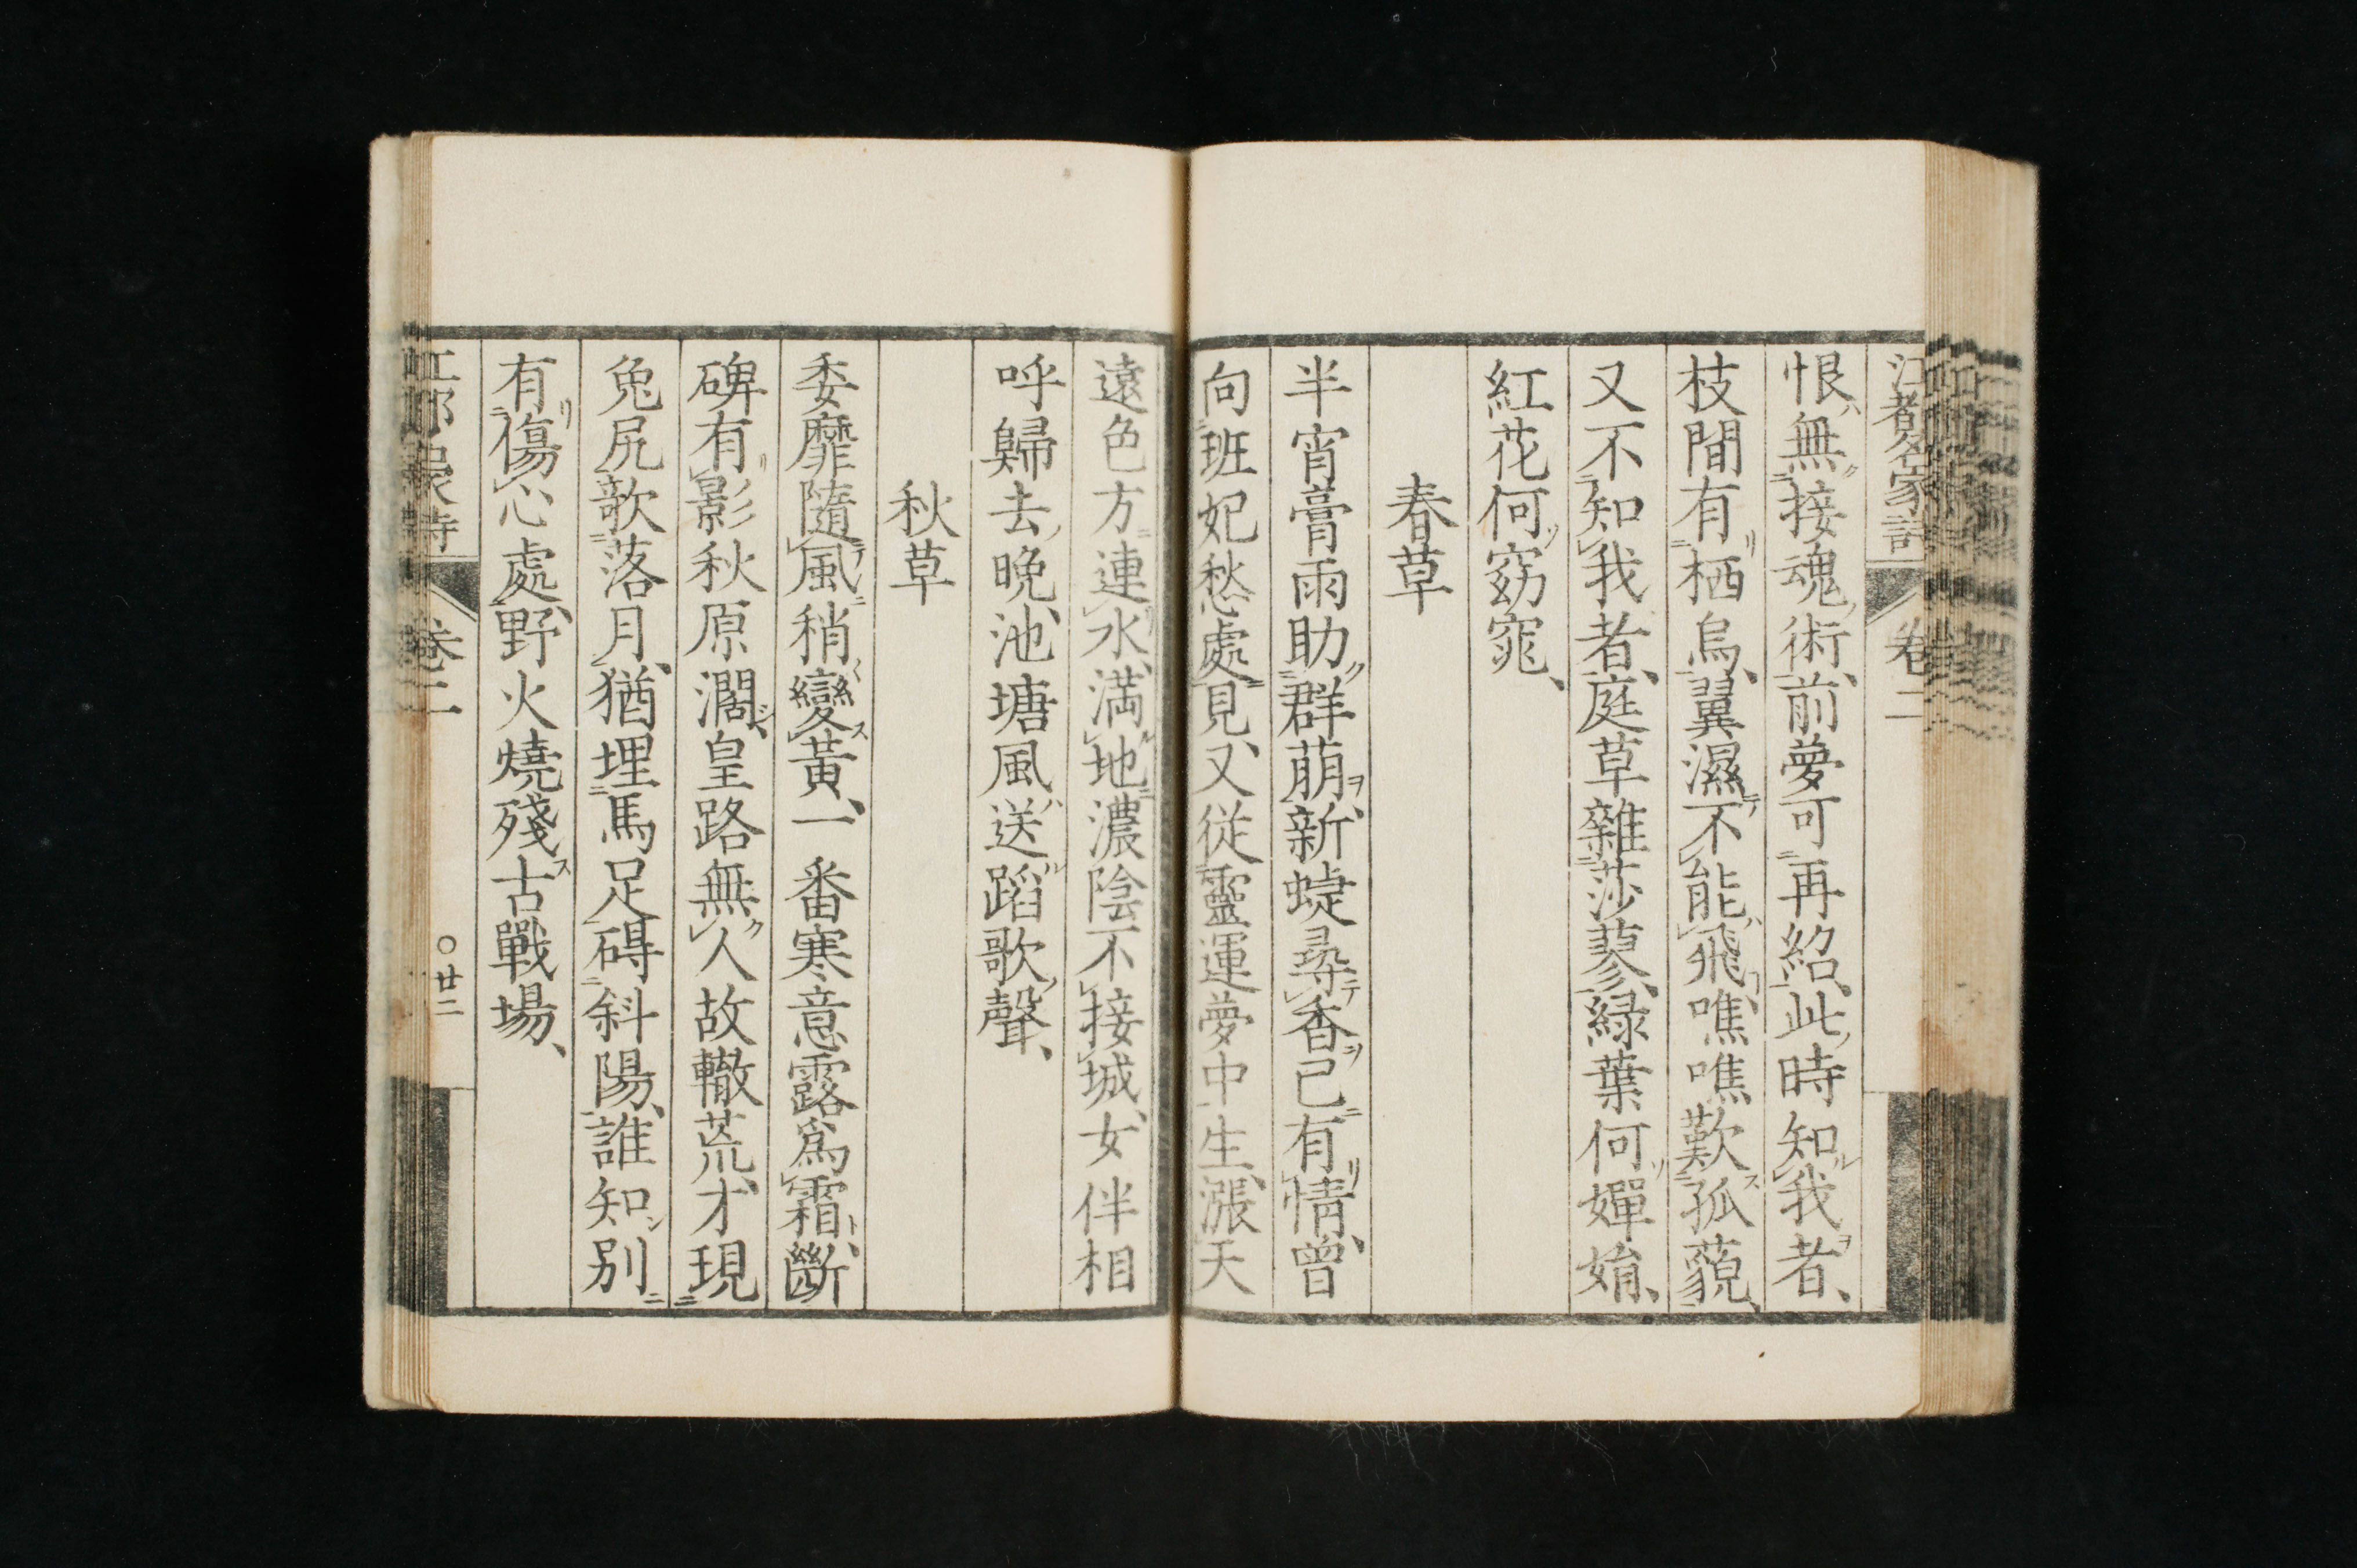 江都名家詩 卷二
恨無接魂術、前夢可再紹、此時知我者、
枝間有栖烏、翼濕不能飛、噍噍歎孤藐、
又不知我者、庭草雜莎蓼、緑葉何嬋娟、
紅花何窈窕、
春草
半宵膏雨助群萠、新蜨尋香已有情、曾
向班妃愁處見、又從靈運夢中生、漲天
遠色方連水、満地濃陰不接城、女伴相
呼歸去晩、池塘風送蹈歌聲、
秋草
委靡隨風稍變黃、一番寒意露爲霜、斷
碑有影秋原濶、皇路無人故轍荒、才現
兔尻欹落月、猶埋馬足碍斜陽、誰知別
有傷心處、野火燒殘古戰場、
卷二 〇廿二